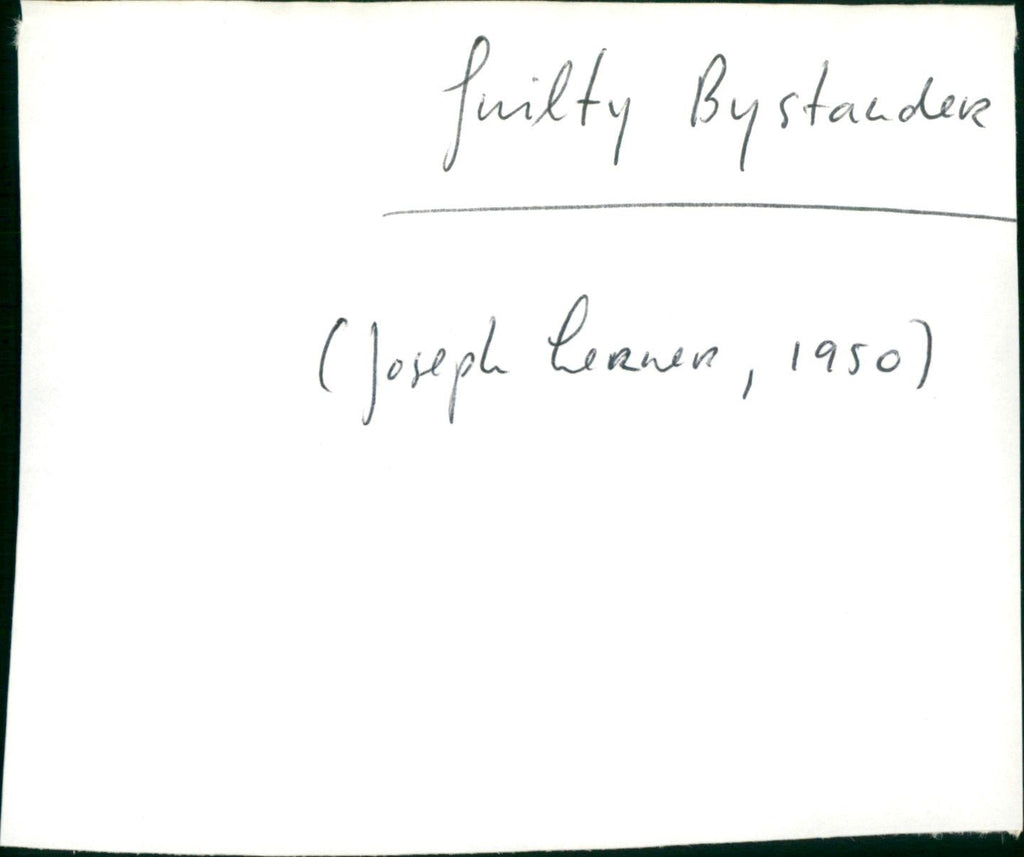 Guilty Bystander
(Joseph Lerner, 1950)